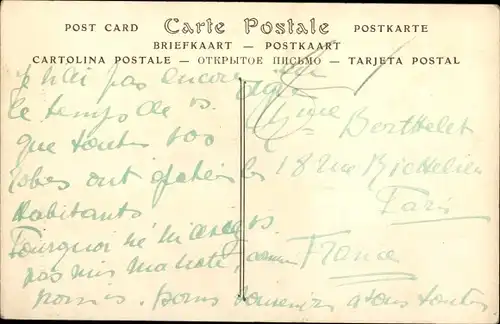 POST CARD Carte Postale POSTKARTE
BRIEFKAART — POSTKAART
CARTOLINA POSTALE — ОТКРЫТОЕ ПИСЬМО — TARJETA POSTAL
je n'ai pas encore eu
le temps de vs
que toutes vos
robes ont les
habitants
Pourquoi ne m'avez vs
pas mis ma note, comme
promis. bons souvenirs à tous toutes
Mme Berthelet
18 rue Richelieu
Paris
France